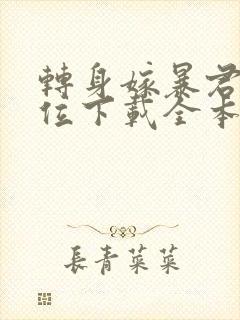 轉身嫁暴君
位下載全本
長青菜菜